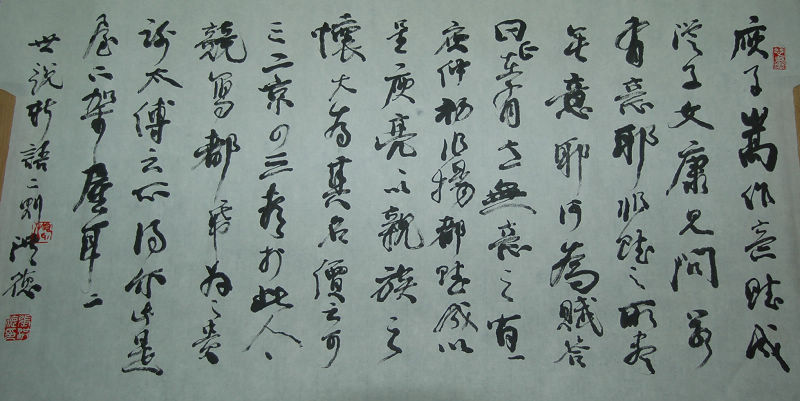 庾子嵩作意賦成
從子文康見問若
有意耶非賦之所盡
無意耶何為賦答
曰正在有意無意之間
庾仲初作揚都賦成以
呈庾亮以親族之
懷大為其名價云可
三二京四三都於此人々
競寫都紙為之貴
謝太傅云不得爾此是
屋下架屋耳
世說新語二則 洪德